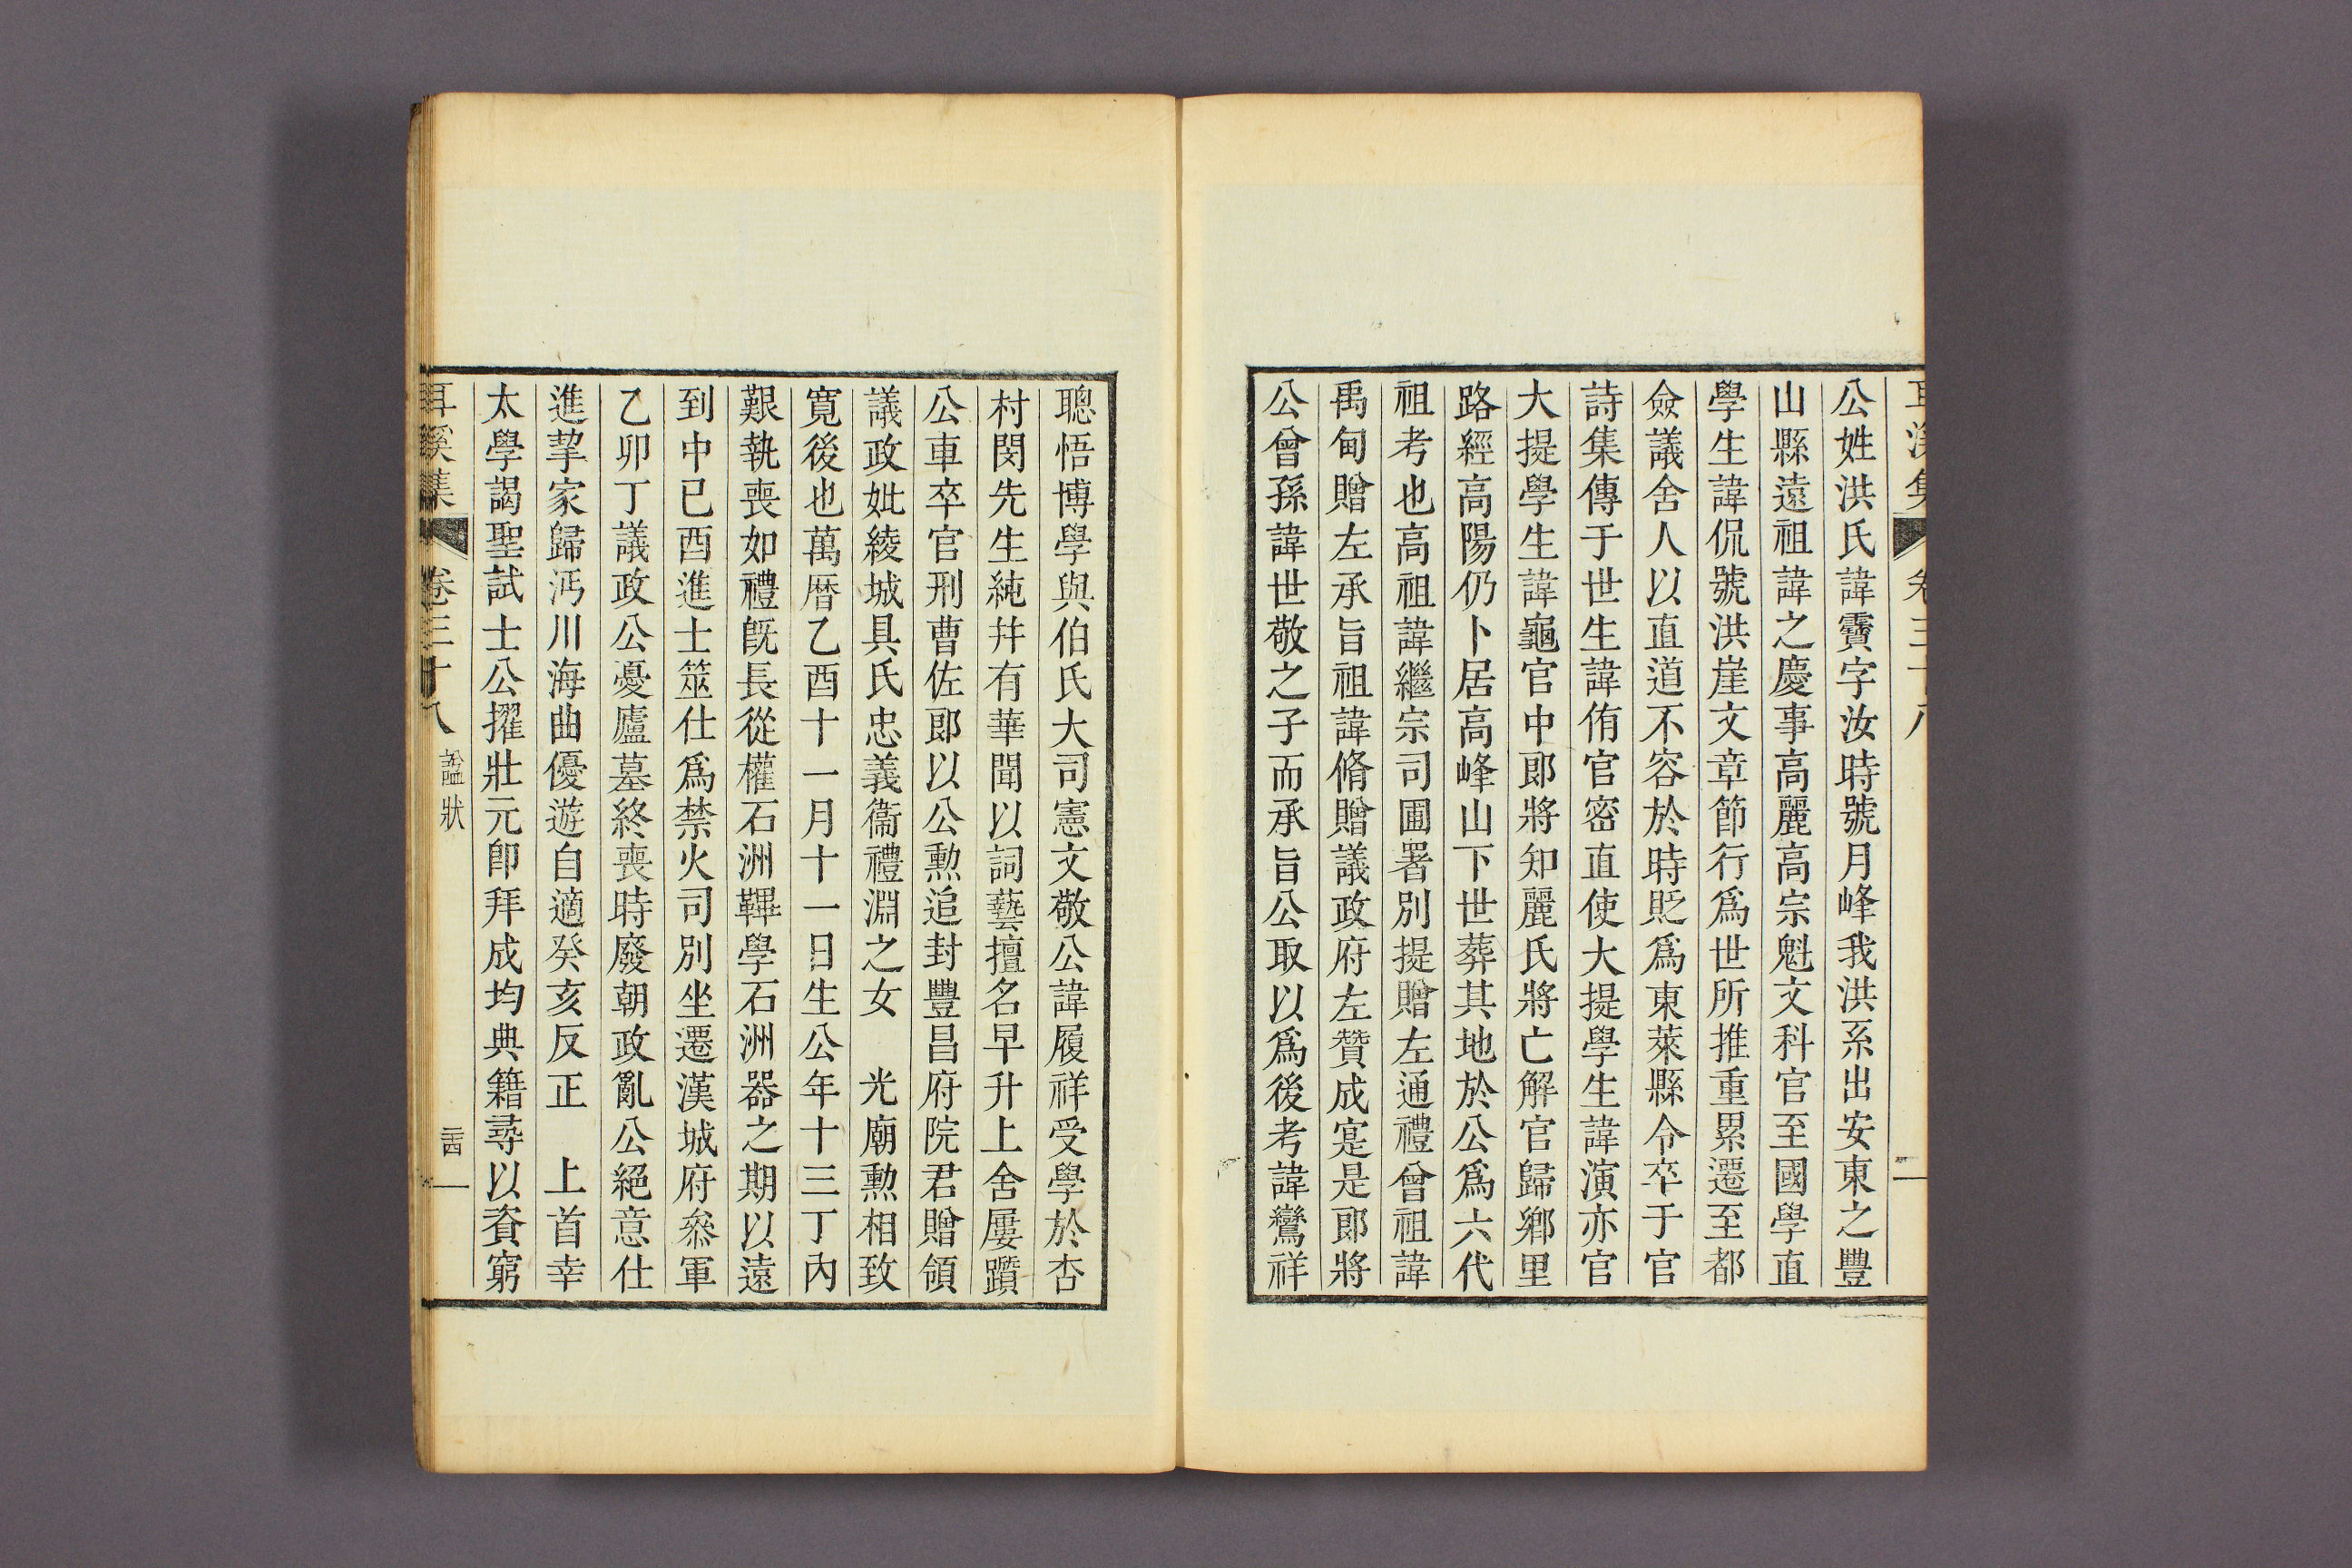 公姓洪氏諱霣字汝時號月峰我洪系出安東之豐
山縣遠祖諱之慶事高麗高宗魁文科官至國學直
學生諱侃號洪崖文章節行爲世所推重累遷至都
僉議舍人以直道不容於時貶爲東萊縣令卒于官
詩集傳于世生諱侑官密直使大提學生諱演亦官
大提學生諱龜官中郞將知麗氏將亡解官歸鄕里
路經高陽仍卜居高峰山下世葬其地於公爲六代
祖考也高祖諱繼宗司圃署別提贈左通禮曾祖諱
禹甸贈左承旨祖諱脩贈議政府左贊成寔是郞將
公曾孫諱世敬之子而承旨公取以爲後考諱鸞祥
聰悟博學與伯氏大司憲文敬公諱履祥受學於杏
村閔先生純幷有華聞以詞藝擅名早升上舍屢躓
公車卒官刑曹佐郞以公勳追封豐昌府院君贈領
議政妣綾城具氏忠義衞禮淵之女 光廟勳相致
寬後也萬曆乙酉十一月十一日生公年十三丁內
艱執喪如禮旣長從權石洲韠學石洲器之期以遠
到中己酉進士筮仕爲禁火司別坐遷漢城府叅軍
乙卯丁議政公憂廬墓終喪時廢朝政亂公絕意仕
進挈家歸沔川海曲優遊自適癸亥反正 上首幸
太學謁聖試士公擢壯元卽拜成均典籍尋以資窮
耳溪集 卷三十八 諡狀